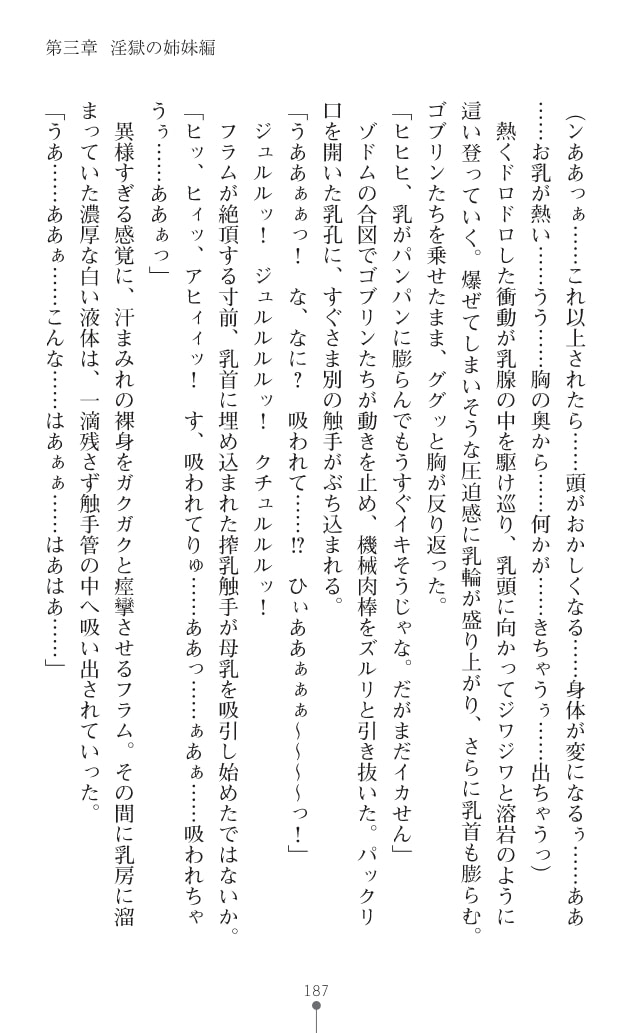 第三章 淫獄の姉妹編
（ンああっぁ……これ以上されたら……頭がおかしくなる……身体が変になるぅ……ああ
……お乳が熱い……うう……胸の奥から……何かが……きちゃうぅ……出ちゃうっ）
熱くドロドロした衝動が乳腺の中を駆け巡り、乳頭に向かってジワジワと溶岩のように
這い登っていく。爆ぜてしまいそうな圧迫感に乳輪が盛り上がり、さらに乳首も膨らむ。
ゴブリンたちを乗せたまま、ググッと胸が反り返った。
「ヒヒヒ、乳がパンパンに膨らんでもうすぐイキそうじゃな。だがまだイカせん」
ゾドムの合図でゴブリンたちが動きを止め、機械肉棒をズルリと引き抜いた。パックリ
口を開いた乳孔に、すぐさま別の触手がぶち込まれる。
「うああぁぁっ！ な、なに？ 吸われて……!? ひぃああぁぁぁ～～～～っ！」
ジュルルッ！ ジュルルルルッ！ クチュルルルッ！
フラムが絶頂する寸前、乳首に埋め込まれた搾乳触手が母乳を吸引し始めたではないか。
「ヒッ、ヒィッ、アヒィィッ！ す、吸われてりゅ……ああっ……ぁあぁ……吸われちゃ
うぅ……ああぁっ」
異様すぎる感覚に、汗まみれの裸身をガクガクと痙攣させるフラム。その間に乳房に溜
まっていた濃厚な白い液体は、一滴残さず触手管の中へ吸い出されていった。
「うあ……ああぁ……こんな……はあぁぁ……はあはあ……」
187